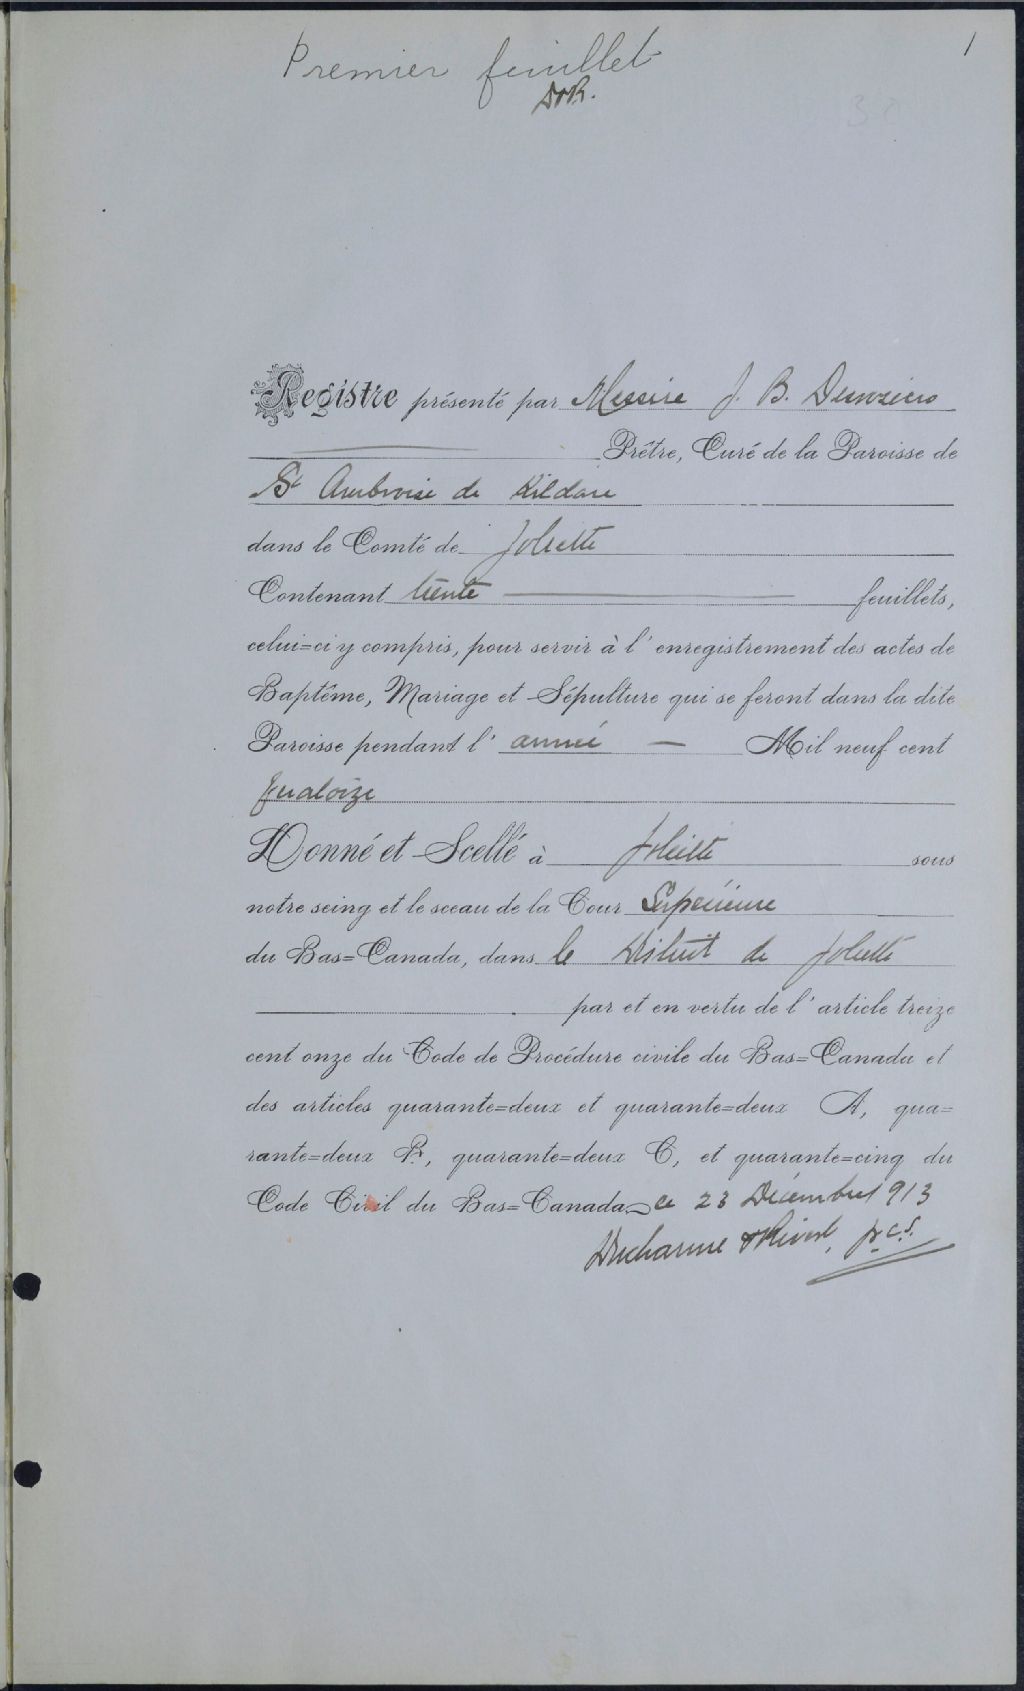 1
Premier feuillet
D&R.
30
Registre présenté par Messire J. B. Desrosiers
Prêtre, Curé de la Paroisse de
St Ambroise de Kildare
dans le Comté de Joliette
Contenant trente feuillets,
celui=ci y compris, pour servir à l'enregistrement des actes de
Baptême, Mariage et Sépulture qui se feront dans la dite
Paroisse pendant l'année — Mil neuf cent
quatorze
Donné et Scellé à Joliette sous
notre seing et le sceau de la Cour Supérieure
du Bas=Canada, dans le District de Joliette
par et en vertu de l'article treize
cent onze du Code de Procédure civile du Bas=Canada et
des articles quarante=deux et quarante=deux A, qua=
rante=deux B, quarante=deux C, et quarante=cinq du
Code Civil du Bas=Canada ce 23 Décembre 1913
Ducharme & Rivest, p.c.s.